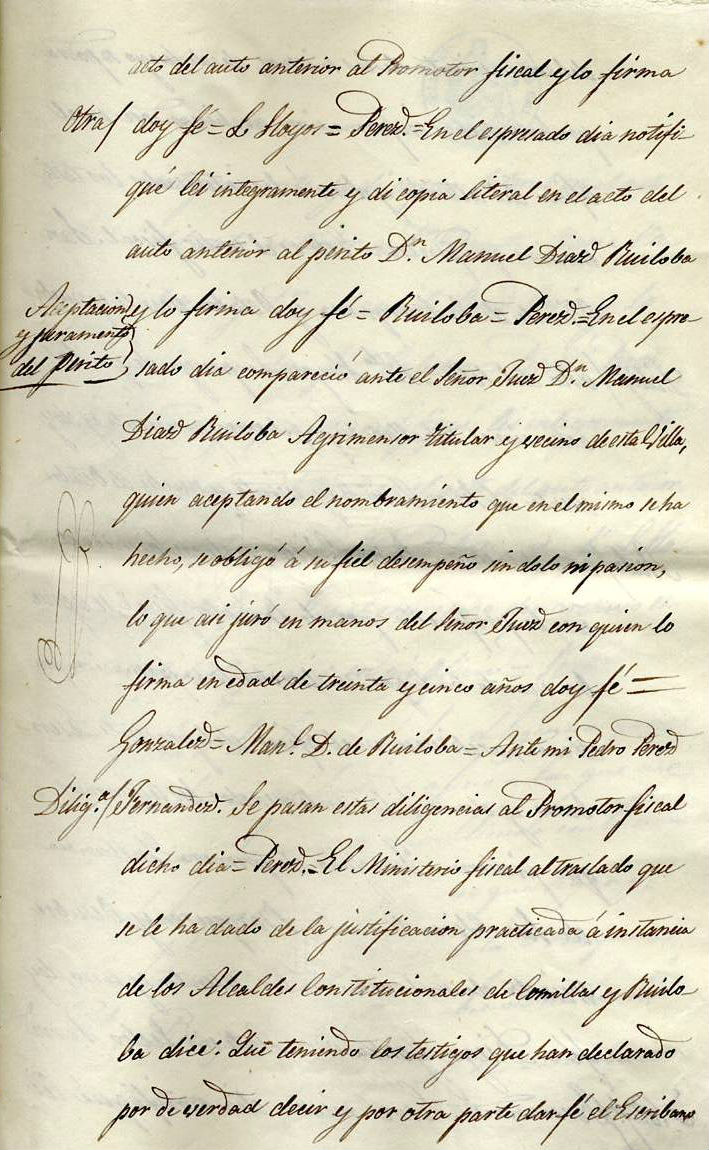 acto del auto anterior al Promotor fiscal y lo firma
Otra/ doy fé = L Hoyos = Perez. = En el espresado dia notifi-
qué leí integramente y di copia literal en el acto del
auto anterior al perito Dn. Manuel Diaz Ruiloba
Aceptacion y lo firma doy fé = Ruiloba = Perez. = En el espre-
y juramento
del Perito sado dia compareció ante el Señor Juez Dn. Manuel
Diaz Ruiloba Agrimensor titular y vecino de esta Villa,
quien aceptando el nombramiento que en el mismo se ha
hecho, se obligó á su fiel desempeño sin dolo ni pasion,
lo que asi juró en manos del Señor Juez con quien lo
firma en edad de treinta y cinco años doy fé =
Gonzalez = Manl. D. de Ruiloba = Ante mi Pedro Perez
Diliga./ Fernandez. Se pasan estas diligencias al Promotor fiscal
dicho dia = Perez. = El Ministerio fiscal al traslado que
se le ha dado de la justificacion practicada á instancia
de los Alcaldes Constitucionales de Comillas y Ruilo-
ba dice: Que teniendo los testigos que han declarado
por de verdad decir y por otra parte dar fé el Escribano